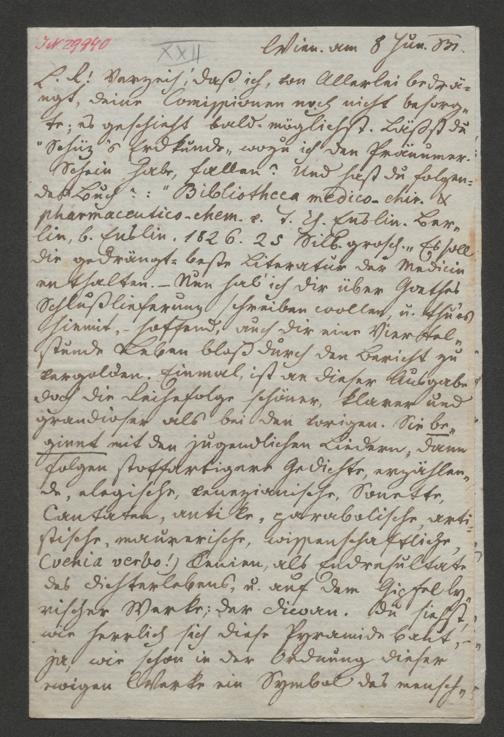 IN 29940
XXII
Wien. am 8 Jun. 31.
L. F.! Verzeih', daß ich, von Allerlei bedrä-
ngt, deine Comissionen noch nicht besorg-
te; es geschieht bald-möglichst. Läßst du
"Schüz's Erdkunde", wozu ich den Pränumer.
Schein habe, fallen? Und hast du folgen-
des Buch: "Bibliotheca medico-chir. &
pharmaceutico-chem. v. T. Ch. Enslin. Ber-
lin, b. Enslin. 1826. 25 Silb. grosch." Es soll
die gedrängt-beste Literatur der Medicin
enthalten. – Nun hab' ich dir über Goethes
Schlußlieferung schreiben wollen, u. thu' es
hiemit, – hoffend, auch dir eine Viertel-
stunde Leben bloß durch den Bericht zu
vergolden. Einmal ist an dieser Ausgabe
doch die Reihefolge schöner, klarer und
grandioser als bei den vorigen. Sie be-
ginnt mit den jugendlichen Liedern, dann
folgen stoffartigere Gedichte, erzählen-
de, elegische, venezianische, Sonette,
Cantaten, antike, parabolische, arti-
stische, maurerische, wissenschaftliche,
(venia verbo!) Xenien, als Endresultate
des Dichterlebens, u. auf dem Gipfel ly-
rischer Werke: der Divan. Du siehst,
wie herrlich sich diese Pyramide baut, –
ja, wie schon in der Ordnung dieser
ewigen Werke ein Symbol des mensch-